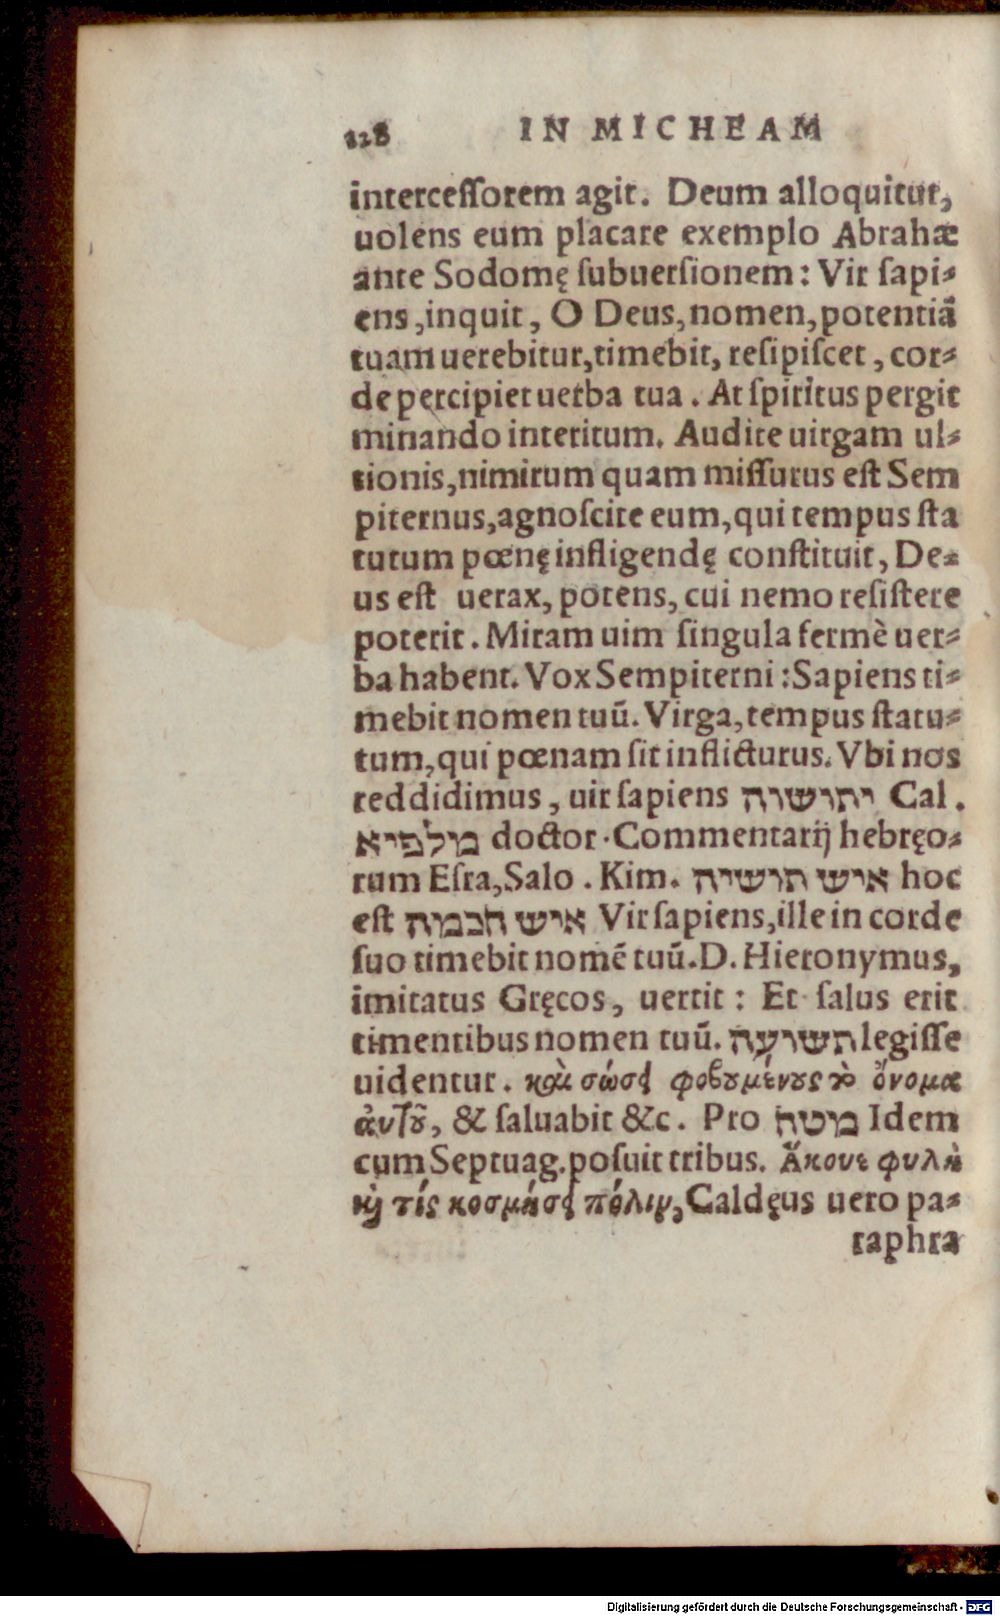 228 IN MICHEAM
interceſſorem agit. Deum alloquitur,
uolens eum placare exemplo Abrahæ
ante Sodomę ſubuerſionem: Vir ſapi⸗
ens, inquit, O Deus, nomen, potentiã
tuam uerebitur, timebit, reſipiſcet, cor⸗
de percipiet uerba tua. At ſpiritus pergit
minando interitum. Audite uirgam ul⸗
tionis, nimirum quam miſſurus eſt Sem
piternus, agnoſcite eum, qui tempus ſta
tutum pœnę infligendę conſtituit, De⸗
us eſt uerax, potens, cui nemo reſiſtere
poterit. Miram uim ſingula fermè uer⸗
ba habent. Vox Sempiterni: Sapiens ti⸗
mebit nomen tuũ. Virga, tempus ſtatu⸗
tum, qui pœnam ſit inflicturus. Vbi nos
reddidimus, uir ſapiens יתושוה Cal.
מלפיא doctor. Commentarij hebręo⸗
rum Eſra, Salo. Kim. איש תושיה hoc
eſt איש חכמה Vir ſapiens, ille in corde
ſuo timebit nomẽ tuũ. D. Hieronymus,
imitatus Gręcos, uertit: Et ſalus erit
timentibus nomen tuũ. תשועה legiſſe
uidentur. καὶ σώσει φοβουμένους τὸ ὄνομα
ἀυτοῦ, & ſaluabit &c. Pro מטה Idem
cum Septuag. poſuit tribus. Ἄκουε φυλὴ
καὶ τίς κοσμήσει πόλιν, Caldęus uero pa⸗
raphra
Digitalisierung gefördert durch die Deutsche Forschungsgemeinschaft - DFG